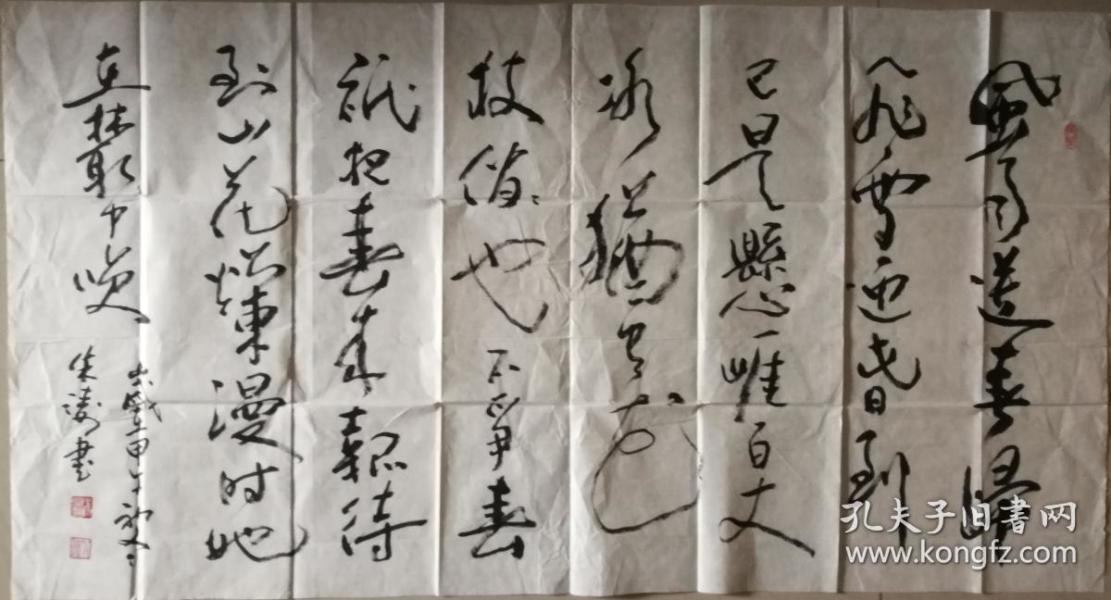 風雨送春歸
飛雪迎春到
已是懸崖百丈
冰猶有花
枝俏俏也不爭春
祇把春來報待
到山花爛漫时她
在丛中笑
朱涛書
孔夫子旧書网
www.kongfz.com